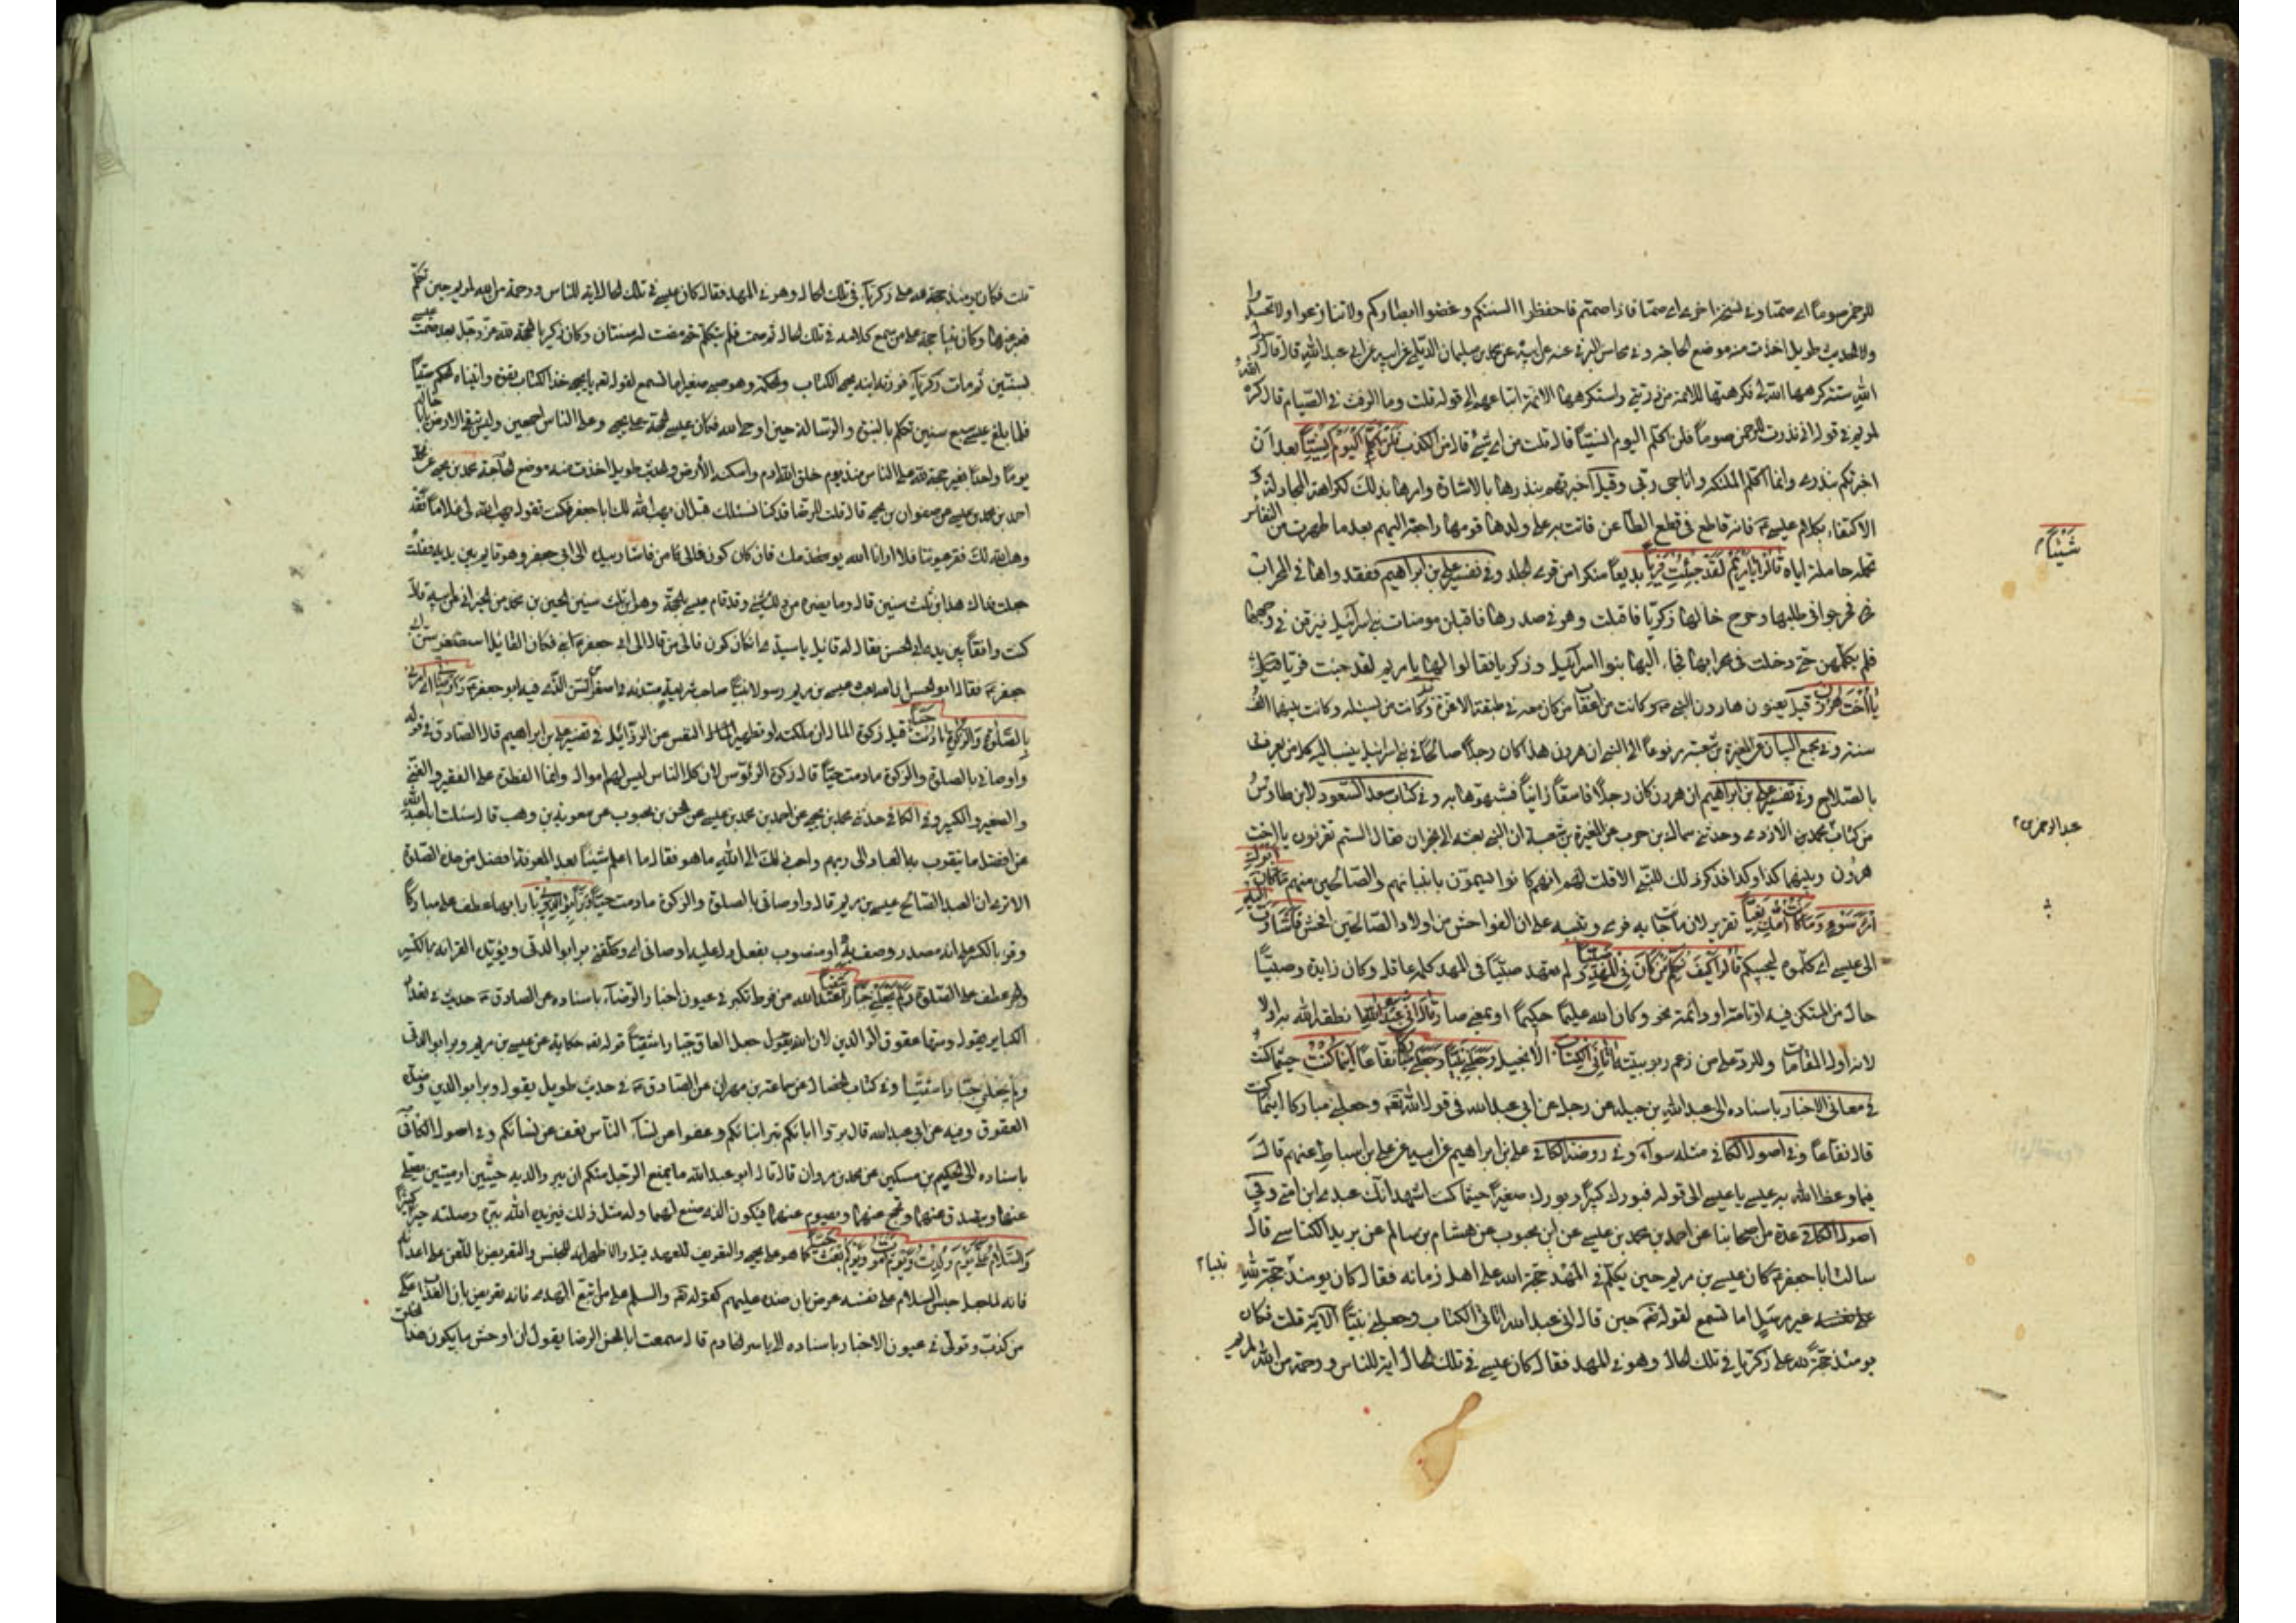 للرحمن صوما اى صمتا وفى نسخة اخرى اى صمتا فاذا صمتم فاحفظوا السنتكم وغضوا ابصاركم ولا تنازعوا ولا تحسدوا
والحديث طويل اخذت منه موضع الحاجة وفى محاسن البرقى عنه عن ابيه عن محمد بن سليمان الديلمى عن ابيه عن ابى عبد الله قال قال رسول
الله ستة كرهها الله لى فكرهتها للائمة من ذريتى ولتكرهها الائمة لاتباعهم الى قوله قلت وما الرفث فى الصيام قال ما كره الله
لمريم فى قوله انى نذرت للرحمن صوما فلن اكلم اليوم انسيا قال قلت من اى شئ قال من الكذب فَلَنْ اُكَلِّمَ الْيَوْمَ اِنْسِيّاً بعد ان
اخبرتكم بنذرى وانما اكلم الملئكة واناجى ربى وقيل اخبرتهم بنذرها بالاشارة وامرها بذلك لكراهة المجادلة و
الاكتفاء بكلام عيسى ع فانه قاطع فى قطع الطاعن فاتت به على ولدها قومها راجعة اليهم بعد ما طهرت من النفاس
تحمله حاملة اياه قَالُوا يَا مَرْيَمُ لَقَدْ جِئْتِ فَرِيّاً بديعا منكرا من فرى الجلد وفى تفسير على بن ابراهيم ففقدوها فى المحراب
فخرجوا فى طلبها وخرج خالها زكريا فاقبلت وهو فى صدرها فاقبلن مومنات بنى اسرائيل يبزقن فى وجهها
فلم تكلمهن حتى دخلت فى محرابها فجاء اليها بنوا اسرائيل وزكريا فقالوا لها يا مريم لقد جئت فريا
يَا اُخْتَ هرُونَ قيل يعنون هارون النبى ص وكانت من اعقاب من كان معه فى طبقة الاخوة وكانت من نسله وكانت بينهما الف
سنة وفى مجمع البيان عن المغيرة بن شعبة مرفوعا الى النبى ان هرون هذا كان رجلا صالحا فى بنى اسرائيل ينسب اليه كل من يعرف
بالصلاح وفى تفسير على بن ابراهيم ان هرون كان رجلا فاسقا زانيا فشبهوها به وفى كتاب سعد السعود لابن طاوس
من كتاب محمد بن الازدى وحدثنى سماك بن حرب عن المغيرة بن شعبة ان النبى بعثه الى نجران فقالوا الستم تقرئون يا اخت
هرون وبينهما كذا وكذا فذكر ذلك للنبى الا قلت لهم انهم كانوا يسمون بانبيائهم والصالحين منهم مَا كَانَ اَبُوكِ
امْرَءَ سَوْءٍ وَمَا كَانَتْ اُمُّكِ بَغِيّاً تقرير لان ما جاءت به فرى وتنبيه على ان الفواحش من اولاد الصالحين افحش فَاَشَارَتْ اِلَيْهِ
الى عيسى اى كلموه ليجيبكم قَالُوا كَيْفَ نُكَلِّمُ مَنْ كَانَ فِى الْمَهْدِ صَبِيّاً لم نعهد صبيا فى المهد كلمه عاقل وكان زايدة وصبيا
حال من المستكن فيه او تامة او دائمة نحو وكان الله عليما حكيما او بمعنى صار قَالَ اِنِّى عَبْدُ اللّهِ انطقه الله به اولا
لانه اول المقامات وللرد على من زعم ربوبيته آتَانِىَ الْكِتَابَ الانجيل وَجَعَلَنِى نَبِيّاً وَجَعَلَنِى مُبَارَكاً نفاعا اَيْنَمَا كُنْتُ حيثما كنت و
فى معانى الاخبار باسناده الى عبد الله بن جبلة عن رجل عن ابى عبد الله فى قول الله تعم وجعلنى مباركا اينما كنت
قال نفاعا وفى اصول الكافى مثله سواء وفى روضة الكافى على بن ابراهيم عن ابيه عن على بن اسباط عنهم قال
فيما وعظ الله به عيسى يا عيسى الى قوله فبوركت كبيرا وبوركت صغيرا حيثما كنت اشهد انك عبدى ابن امتى وفى
اصول الكافى عدة من اصحابنا عن احمد بن محمد بن عيسى عن ابن محبوب عن هشام بن سالم عن بريد الكناسى قال
سالت ابا جعفر ع كان عيسى بن مريم حين تكلم فى المهد حجة الله على اهل زمانه فقال كان يومئذ حجة لله نبيا
غير مرسل اما تسمع لقوله تعم حين قال انى عبد الله اتانى الكتاب وجعلنى نبيا الآية قلت فكان
يومئذ حجة لله على زكريا فى تلك الحال وهو فى المهد فقال كان عيسى فى تلك الحال اية للناس ورحمة من الله لمريم
شَيْئاً
عبد الرحمن
قلت فكان يومئذ حجة لله على زكريا فى تلك الحال وهو فى المهد فقال كان عيسى فى تلك الحال اية للناس ورحمة من الله لمريم حين تكلم
فعبر عنها وكان نبيا حجة على من سمع كلامه فى تلك الحال ثم صمت فلم يتكلم حتى مضت له سنتان وكان زكريا الحجة لله عز وجل بعد صمت عيسى
بسنتين ثم مات زكريا ع فورثه ابنه يحيى الكتاب والحكمة وهو صبى صغير اما تسمع لقوله تعم يا يحيى خذ الكتاب بقوة واتيناه الحكم صبيا
فلما بلغ عيسى سبع سنين تكلم بالنبوة والرسالة حين اوحى الله فكان عيسى الحجة على يحيى وعلى الناس اجمعين وليس تبقى الارض يا ابا خالد
يوما واحدا بغير حجة لله على الناس منذ يوم خلق الله ادم واسكنه الارض والحديث طويل اخذت منه موضع الحاجة محمد بن يحيى عن
احمد بن محمد بن عيسى عن صفوان بن يحيى قال قلت للرضا قد كنا نسئلك قبل ان يهب الله لك ابا جعفر فكنت تقول يهب الله لى غلاما فقد
وهب الله لك فقر عيوننا فلا ارانا الله يومك فان كان كون فالى من فاشار بيده الى ابى جعفر وهو قايم بين يديه فقلت
جعلت فداك هذا ابن ثلث سنين قال وما يضره من ذلك شئ وقد قام عيسى بالحجة وهو ابن ثلث سنين الحسين بن محمد عن الخيرانى عن ابيه قال
كنت واقفا بين يدى ابى الحسن فقال له قائل يا سيدى ان كان كون فالى من قال الى ابى جعفر ابنى فكان القائل استصغر سن ابى
جعفر ع فقال ابو الحسن ان الله بعث عيسى بن مريم رسولا نبيا صاحب شريعة مبتدئة فى اصغر من السن الذى فيه ابو جعفر ع وَاَوْصَانِى امرنى
بِالصَّلوةِ وَالزَّكوةِ مَا دُمْتُ حَيّاً قيل زكوة المال ان ملكته او تطهير النفس من الرذائل فى تفسير على بن ابراهيم قال الصادق فى قوله
واوصانى بالصلوة والزكوة ما دمت حيا قال زكوة الرؤس لان كل الناس ليس لهم اموال وانما الفطرة على الفقير والغنى
والصغير والكبير وفى الكافى حدثنى محمد بن يحيى عن احمد بن محمد بن عيسى عن الحسن بن محبوب عن معوية بن وهب قال سئلت ابا عبد الله
عن افضل ما يتقرب به العباد الى ربهم واحب ذلك الى الله ما هو فقال ما اعلم شيئا بعد المعرفة افضل من هذه الصلوة
الا ترى ان العبد الصالح عيسى بن مريم قال واوصانى بالصلوة والزكوة ما دمت حيا وَبَرّاً بِوَالِدَتِى بارا بها عطف على مباركا
وقرء بالكسر على انه مصدر وصف به او منصوب بفعل دل عليه اوصانى اى وكلفنى برا بوالدتى ويؤيده القرائة بالكسر
والجر عطف على الصلوة وَلَمْ يَجْعَلْنِى جَبَّاراً شَقِيّاً عند الله من فرط تكبره فى عيون اخبار الرضا ع باسناده عن الصادق ع حديث فى تعداد
الكبائر يقول ومنها عقوق الوالدين لان الله يقول جعل العاق جبارا شقيا قوله تعم حكاية عن عيسى بن مريم وبرا بوالدتى
ولم يجعلنى جبارا شقيا وفى كتاب الخصال عن سماعة بن مهران عن الصادق ع فى حديث طويل يقول وبر الوالدين وضده
العقوق وفيه عن ابى عبد الله قال بروا ابائكم تبركم ابنائكم وعفوا عن نساء الناس تعف عن نسائكم وفى اصول الكافى
باسناده الى الحكم بن مسكين عن محمد بن مروان قال قال ابو عبد الله ما يمنع الرجل منكم ان يبر والديه حيين او ميتين يصلى
عنهما ويصدق عنهما ويحج عنهما ويصوم عنهما فيكون الذى صنع لهما وله مثل ذلك فيزيده الله ببره وصلته خيرا كثيرا
وَالسَّلَامُ عَلَىَّ يَوْمَ وُلِدْتُ وَيَوْمَ اَمُوتُ وَيَوْمَ اُبْعَثُ حَيّاً كما هو على يحيى والتعريف للعهد قيل والاظهر انه للجنس والتعريض باللعن على اعدائه
فانه لما جعل جنس السلام على نفسه عرض بان ضده عليهم كقوله تعم والسلم على من اتبع الهدى فانه تعريض بان العذاب على
من كذب وتولى فى عيون الاخبار باسناده الى ياسر الخادم قال سمعت ابا الحسن الرضا يقول ان اوحش ما يكون هذا الخلق